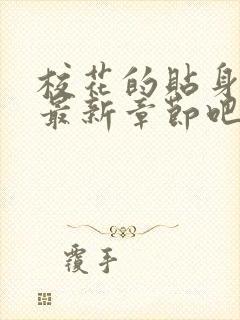 校花的貼身
最新章節吧
覆手